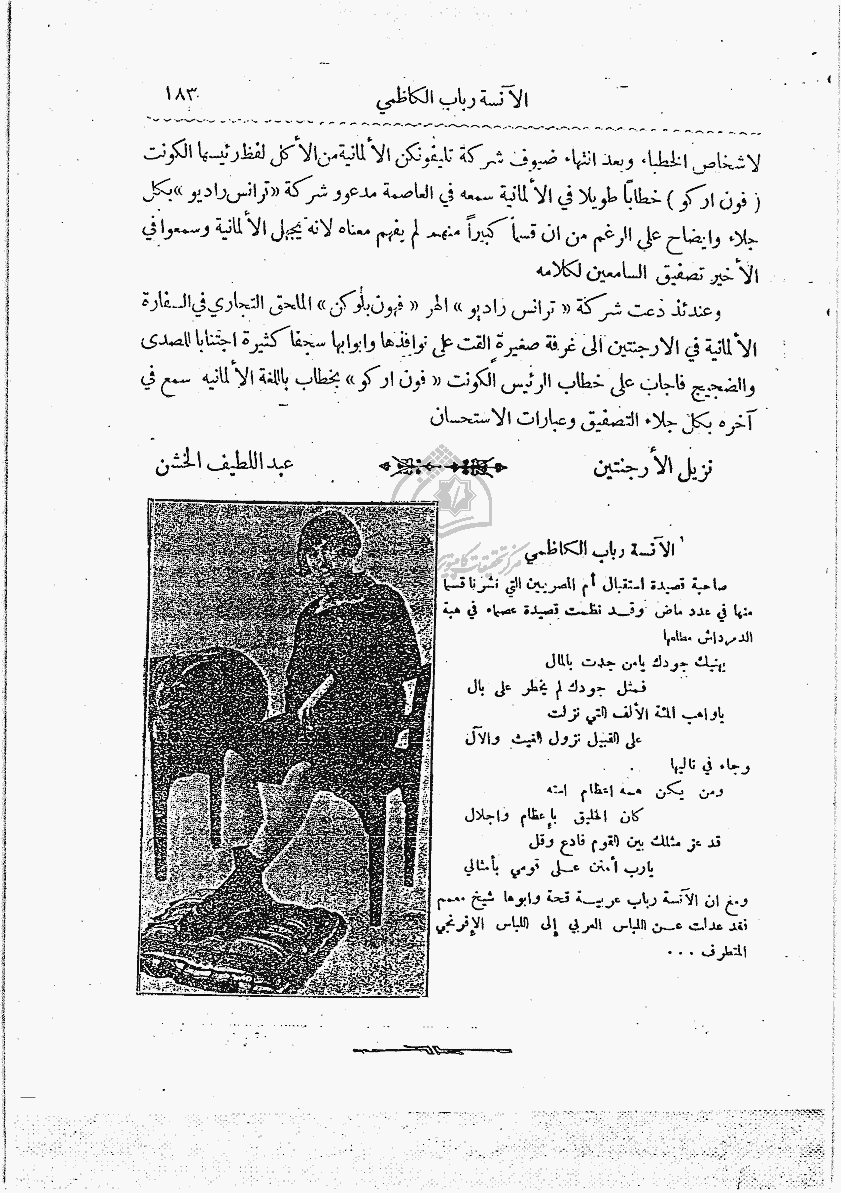 الآنسة رباب الكاظمي ١٨٣
لاشخاص الخطباء وبعد انتهاء ضيوف شركة تليفونكن الألمانية من الأكل لفظ رئيسها الكونت
( فون اركو ) خطاباً طويلا في الألمانية سمعه في العاصمة مدعوو شركة « ترانس راديو » بكل
جلاء وايضاح على الرغم من ان قسماً كبيراً منهم لم يفهم معناه لانه يجهل الألمانية وسمعوا في
الأخير تصفيق السامعين لكلامه
وعندئذ دعت شركة « ترانس راديو » الهر « فهون بلوكن » الملحق التجاري في السفارة
الألمانية في الارجنتين الى غرفة صغيرة القت على نوافذها وابوابها سجفا كثيرة اجتنابا للصدى
والضجيج فاجاب على خطاب الرئيس الكونت « فون اركو » بخطاب باللغة الألمانيه سمع في
آخره بكل جلاء التصفيق وعبارات الاستحسان
نزيل الأرجنتين عبد اللطيف الخشن
الآنسة رباب الكاظمي
صاحبة قصيدة استقبال أم المصريين التي نشرنا قسما
منها في عدد ماض وقد نظمت قصيدة عصماء في هبة
الدمرداش مطلعها
يهنيك جودك يامن جدت بالمال
فمثل جودك لم يخطر على بال
ياواهب المئة الألف التي نزلت
على القبيل نزول الغيث والآل
وجاء في تاليها
ومن يكن همه اعظام امته
كان الخليق بإعظام واجلال
قد عز مثلك بين القوم فادع وقل
يارب أمنن على قومي بأمثالي
ومع ان الآنسة رباب عربية قحة وابوها شيخ معمم
فقد عدلت عن اللباس العربي إلى اللباس الإفرنجي
المتطرف . . .